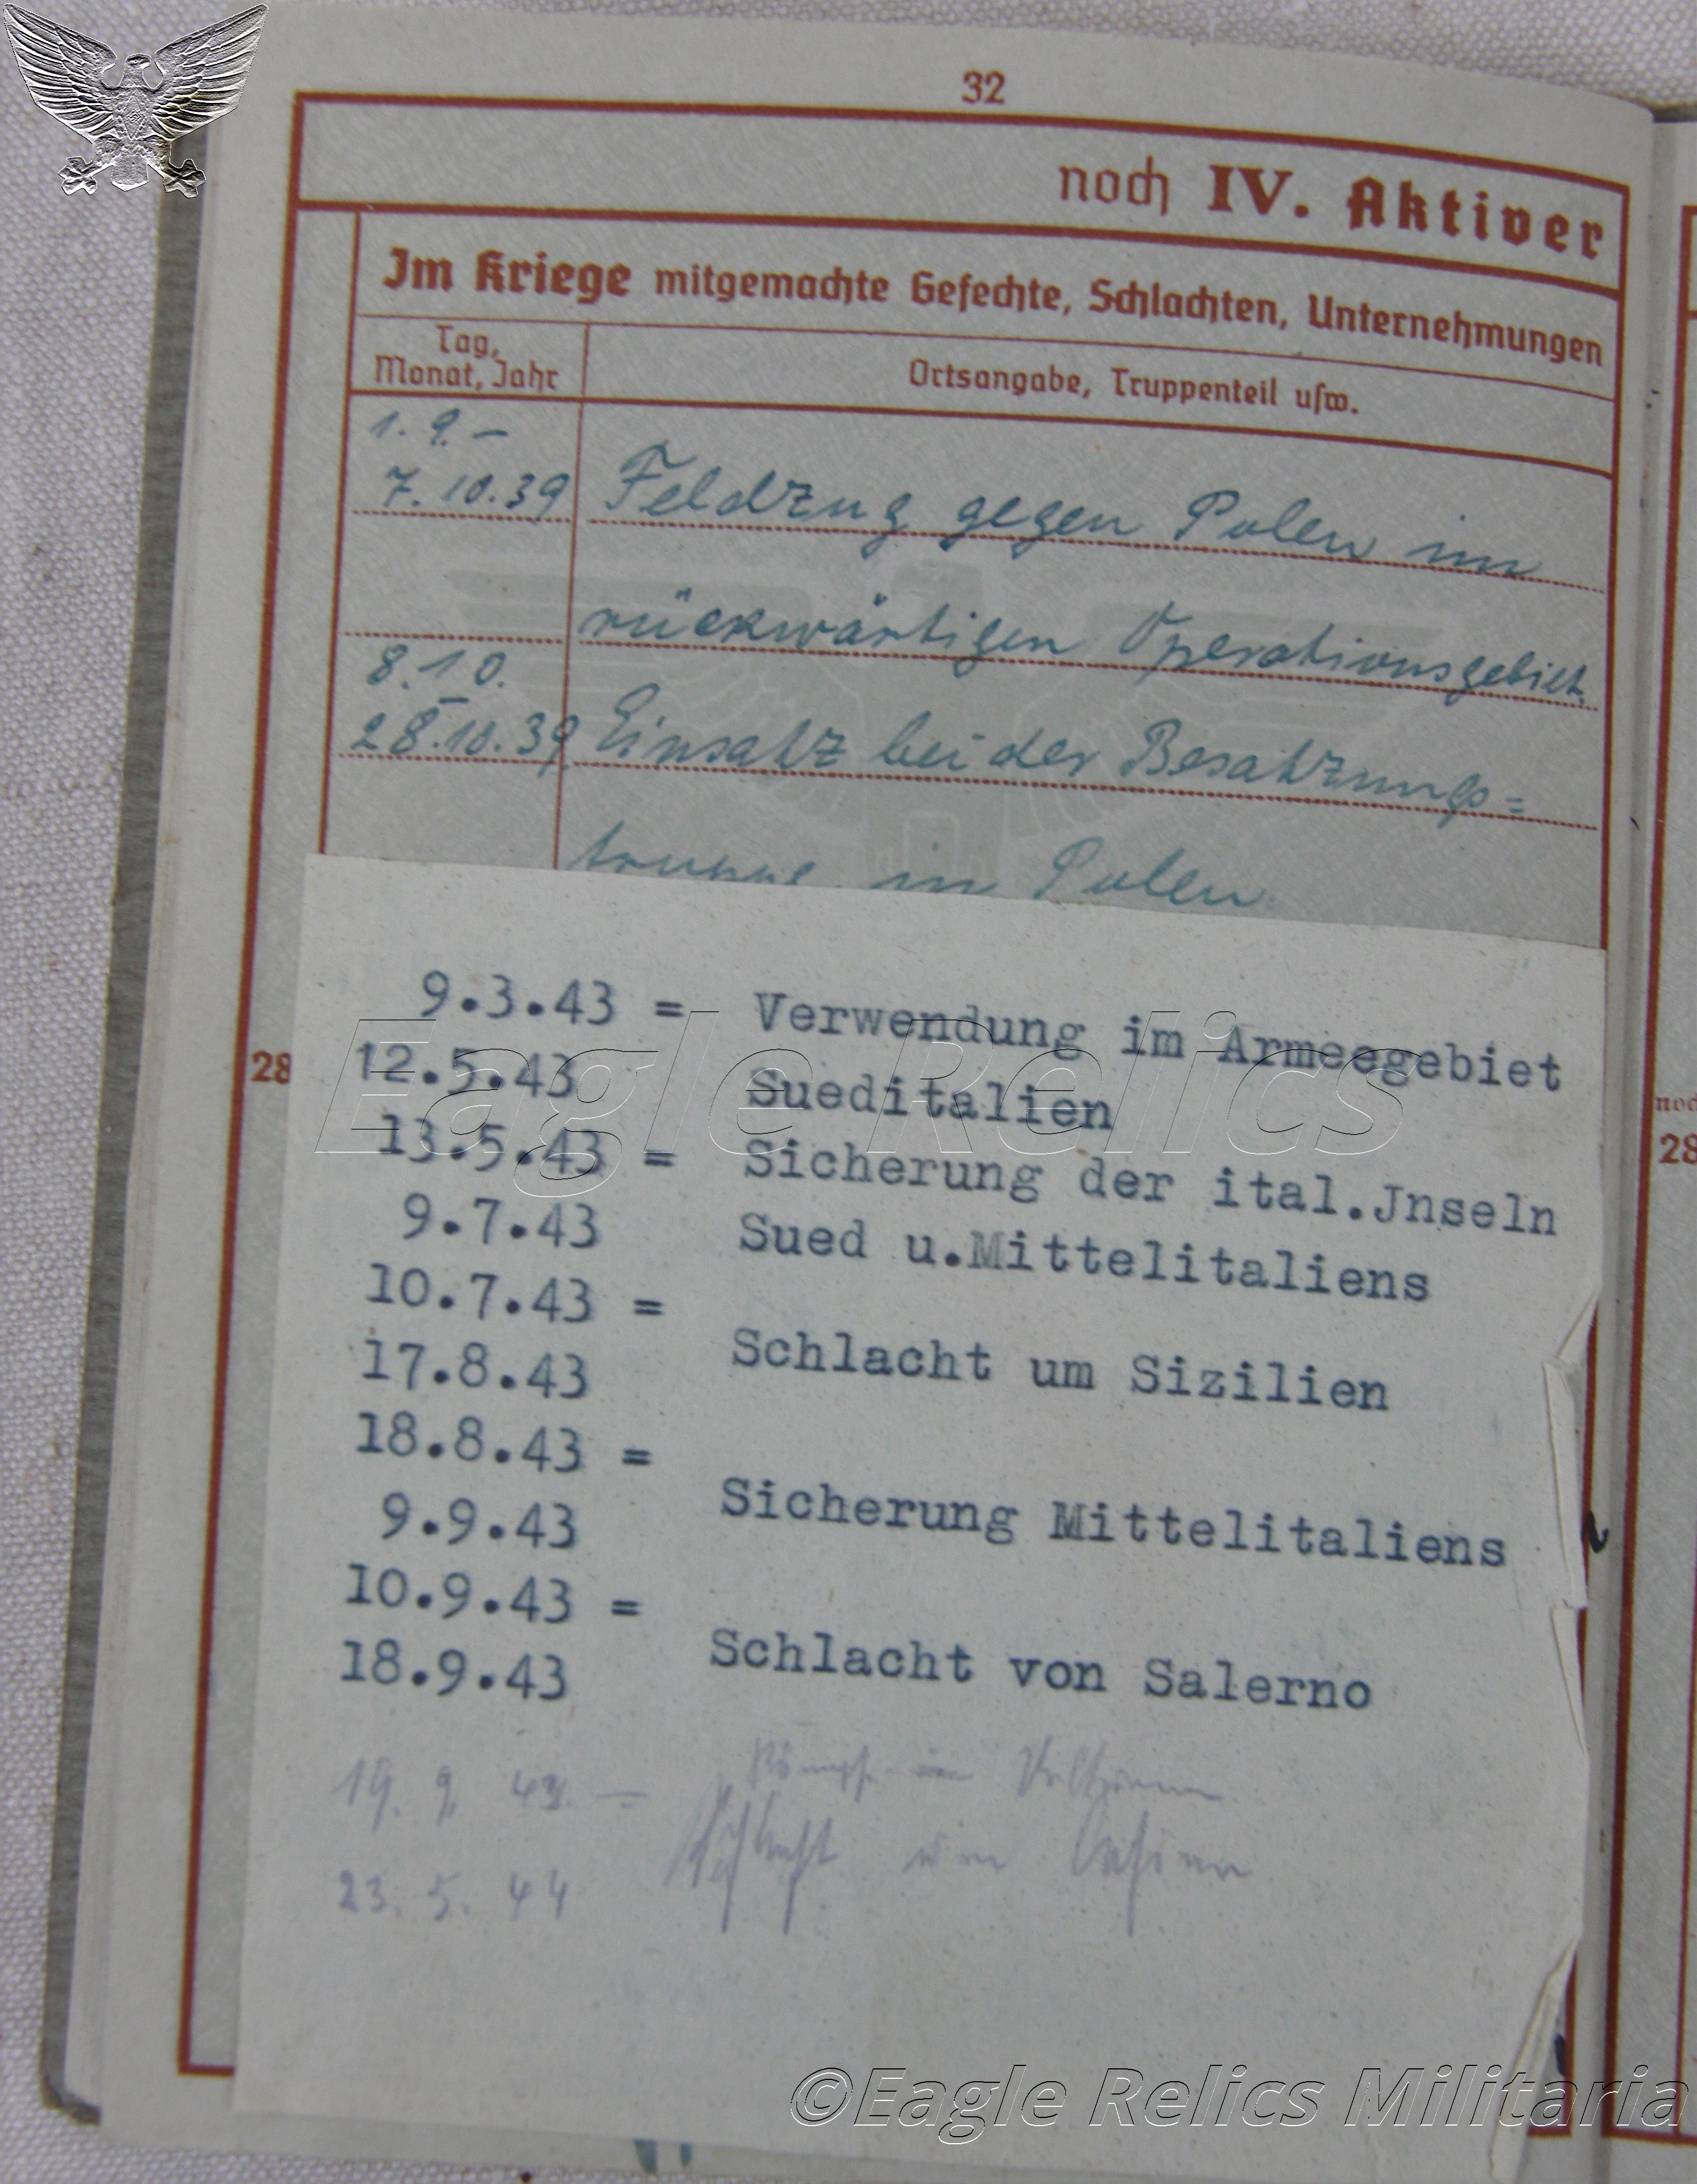 32
noch IV. Aktiver
Im Kriege mitgemachte Gefechte, Schlachten, Unternehmungen
Tag, Monat, Jahr
Ortsangabe, Truppenteil usw.
1. 9. –
7. 10. 39 Feldzug gegen Polen im
rückwärtigen Operationsgebiet
8. 10. –
28. 10. 39. Einsatz bei der Besatzungs=
truppe in Polen.
9.3.43 = Verwendung im Armeegebiet
12.5.43 Sueditalien
13.5.43 = Sicherung der ital.Jnseln
9.7.43 Sued u.Mittelitaliens
10.7.43 =
17.8.43 Schlacht um Sizilien
18.8.43 =
9.9.43 Sicherung Mittelitaliens
10.9.43 =
18.9.43 Schlacht von Salerno
19. 9. 43. –
Schlacht um
23. 5. 44
28
noch
28
Eagle Relics
©Eagle Relics Militaria